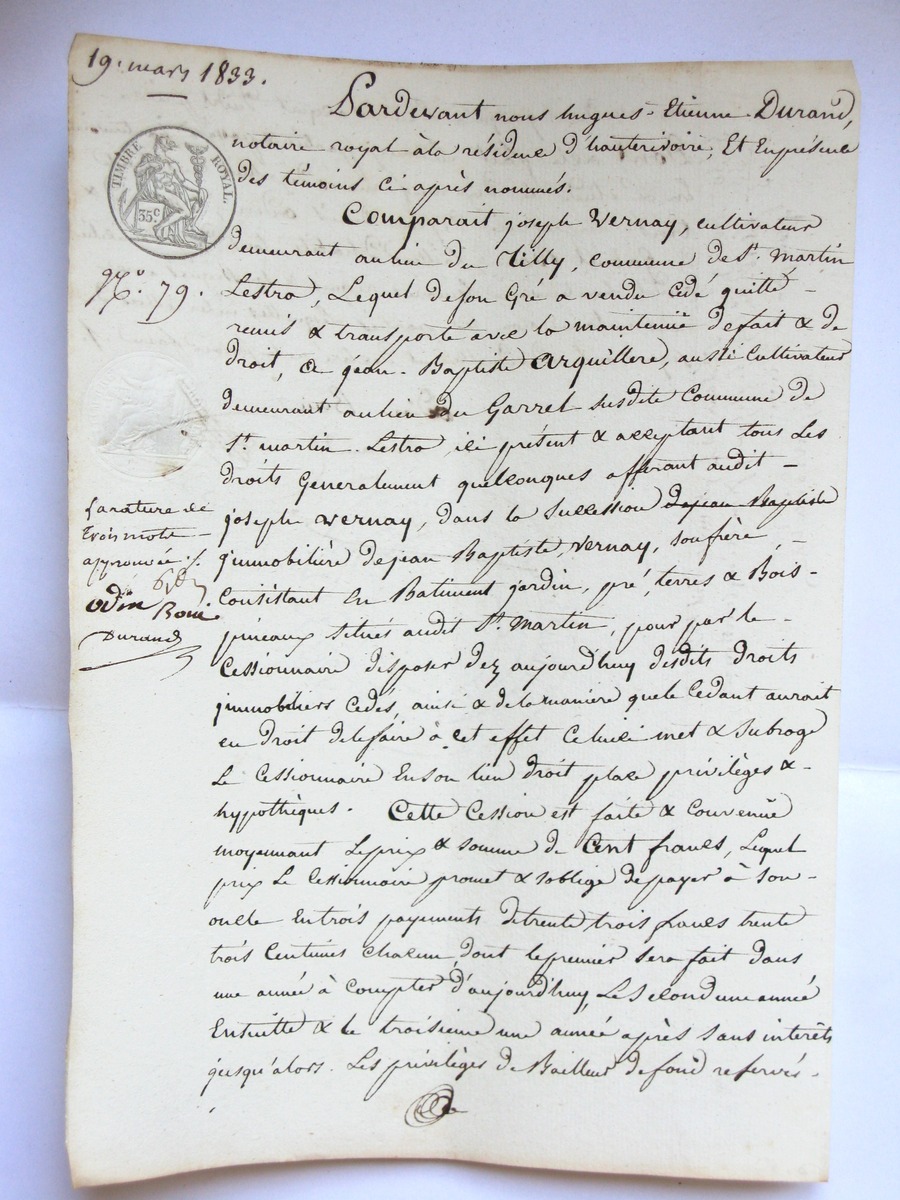 19. mars 1833.
Pardevant nous hugues-Etienne Durand,
notaire royal à la résidence d'hauterivoire, Et En présence
des témoins Ci après nommés.
TIMBRE ROYAL.
35c
Comparait joseph Vernay, cultivateur
demeurant au lieu du Tilly, commune de St. Martin
No. 79.
Lestra, Lequel de son Gré a vendu Cédé quitté
remis & transporté avec la maintenüe de fait & de
droit, a jean-Baptiste Arquillere, aussi Cultivateur
demeurant au lieu du Garret susdite Commune de
St. martin-Lestra, ici présent & acceptant tous Les
droits Generalement quelconques afferant audit
joseph Vernay, dans la Succession de jean Baptiste
jmmobiliére de jean Baptiste Vernay, son frère,
Consistant En Batiment jardin, pré, terres & Bois
pineaux Situés audit St. Martin, pour par le
Cessionnaire disposer dez aujourdhuy desdits droits
jmmobiliers Cedés, ainsi & de la manière que le Cedant aurait
eu droit de le faire à cet effet Celui ci met & Subroge
Le Cessionnaire En son lieu droit place privilèges &
hypothèques. Cette Cession est faite & Convenüe
moyennant Le prix & somme de Cent francs, Lequel
prix Le Cessionnaire promet & s'oblige de payer à Son
oncle En trois payements de trente trois francs trente
trois Centimes Chacun dont le premier sera fait dans
une année à Compter d'aujourd'huy, Le Second une année
Ensuitte & le troisieme une année après Sans intérêts
jusqu'alors. Les privilèges de Bailleur de fond reservés.
La rature de
trois mots
approuvée
odin
Durand